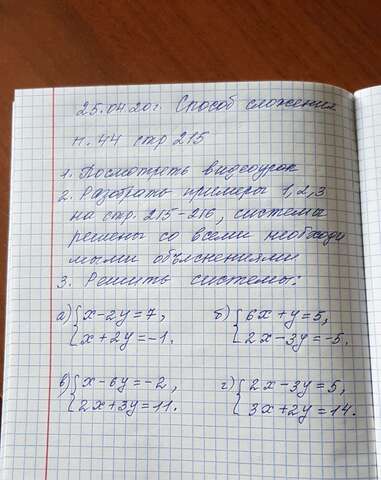 25.04.20г. Способ сложения
п.44 стр 215
1. Посмотреть видеоурок
2. Разобрать примеры 1,2,3
на стр. 215-216, система
решены со всеми необходи
мыми объяснениями
3. Решить системы:
а) { x-2y=7, б) { 6x+y=5,
x+2y=-1. 2x-3y=-5.
в) { x-6y=-2, г) { 2x-3y=5,
2x+3y=11. 3x+2y=14.